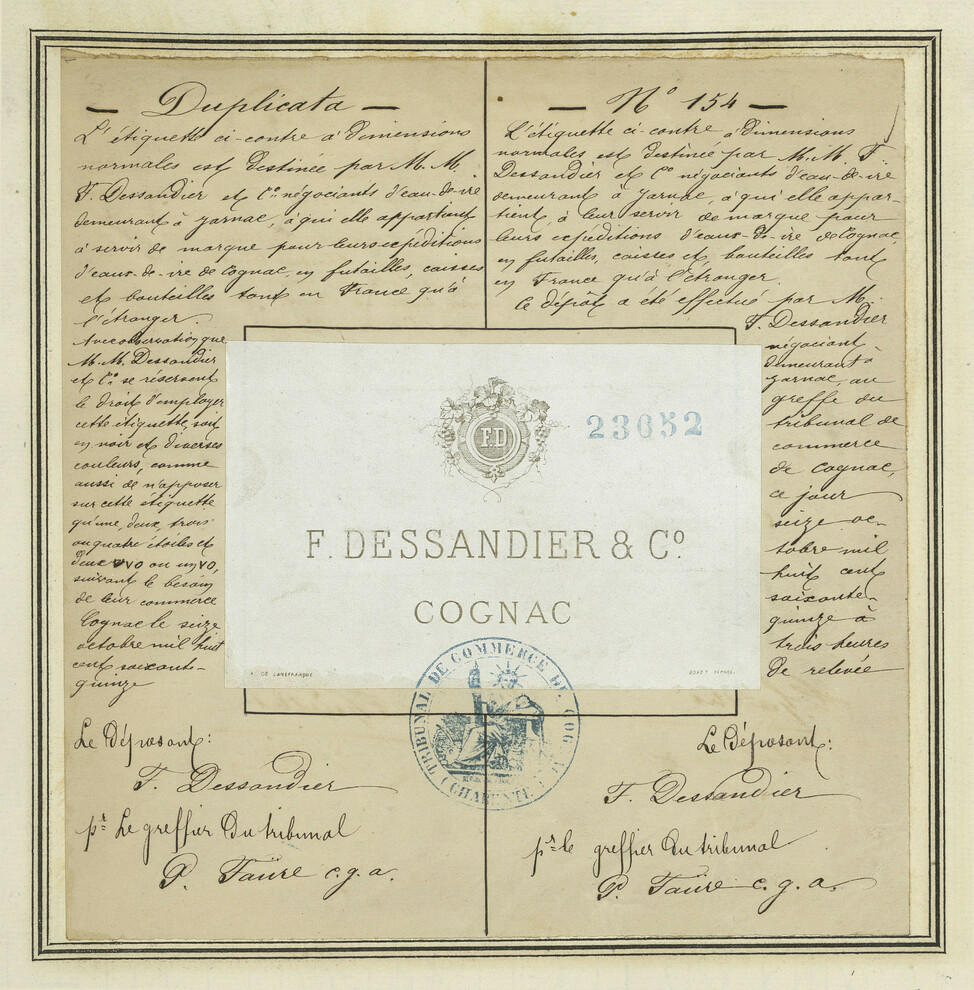 — Duplicata —
L'étiquette ci-contre à dimensions
normales est destinée par M. M.
F. Dessandier et Cⁱᵉ négociants d'eau-de-vie
demeurant à Jarnac, à qui elle appartient
à servir de marque pour leurs expéditions
d'eaux-de-vie de Cognac, en futailles, caisses
et bouteilles tant en France qu'à
l'étranger.
Avec observation que
M. M. Dessandier
et Cⁱᵉ se réservent
le droit d'employer
cette étiquette, soit
en noir et diverses
couleurs, comme
aussi de n'apposer
sur cette étiquette
qu'une, deux, trois
ou quatre étoiles et
deux VVO ou un VO,
suivant le besoin
de leur commerce
Cognac le seize
octobre mil huit
cent soixante-
quinze
Le Déposant:
F. Dessandier
pʳ Le greffier du tribunal
P. Faure c.g.a.
— Nº 154 —
L'étiquette ci-contre à dimensions
normales est destinée par M. M. F.
Dessandier et Cⁱᵉ négociants d'eau-de-vie
demeurant à Jarnac, à qui elle appar-
tient, à leur servir de marque pour
leurs expéditions d'eaux-de-vie de Cognac,
en futailles, caisses et bouteilles tant
en France qu'à l'étranger.
Ce dépôt a été effectué par M.
F. Dessandier
négociant
demeurant à
Jarnac, au
greffe du
tribunal de
commerce
de Cognac,
ce jour
seize oc-
tobre mil
huit cent
soixante-
quinze à
trois heures
de relevée
Le Déposant:
F. Dessandier
pʳ le greffier du tribunal
P. Faure c.g.a.
F.D
23052
F. DESSANDIER & Cº.
COGNAC
TRIBUNAL DE COMMERCE DE COGNAC
(CHARENTE)